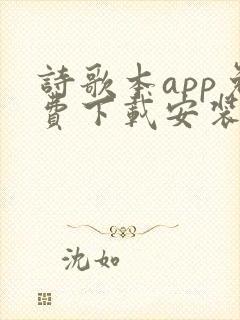 詩歌本app免
費下載安裝
沈如